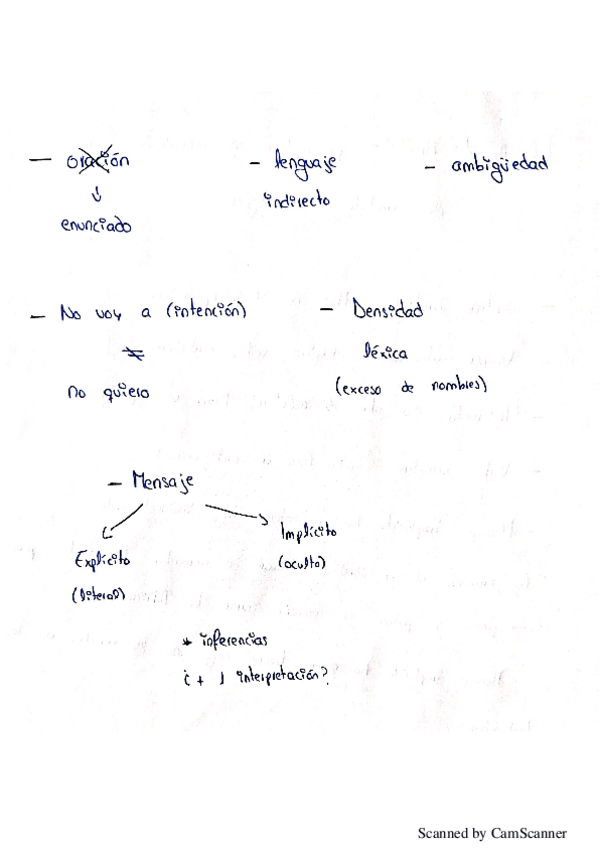 — oración — lenguaje — ambigüedad
↓ indirecto
enunciado
— No voy a (intención) — Densidad
≠ léxica
no quiero (exceso de nombres)
— Mensaje
Implícito
Explícito (oculto)
(literal)
* inferencias
¿ + 1 interpretación?
Scanned by CamScanner